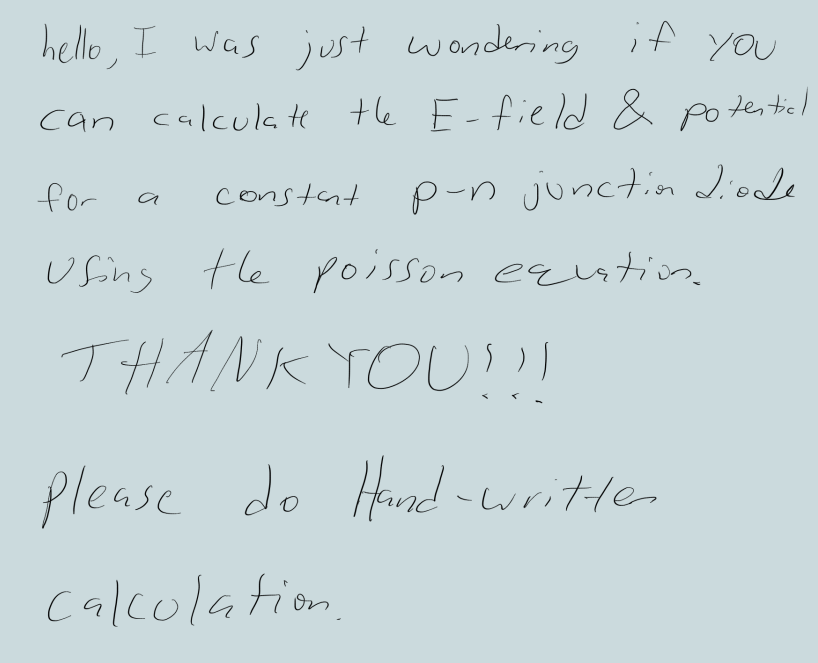 hello, I was just wondering if you
can calculate the E-field & potential
for a constant p-n junction diode
using the poisson equation.
THANK YOU!!!
please do Hand-written
calculation.